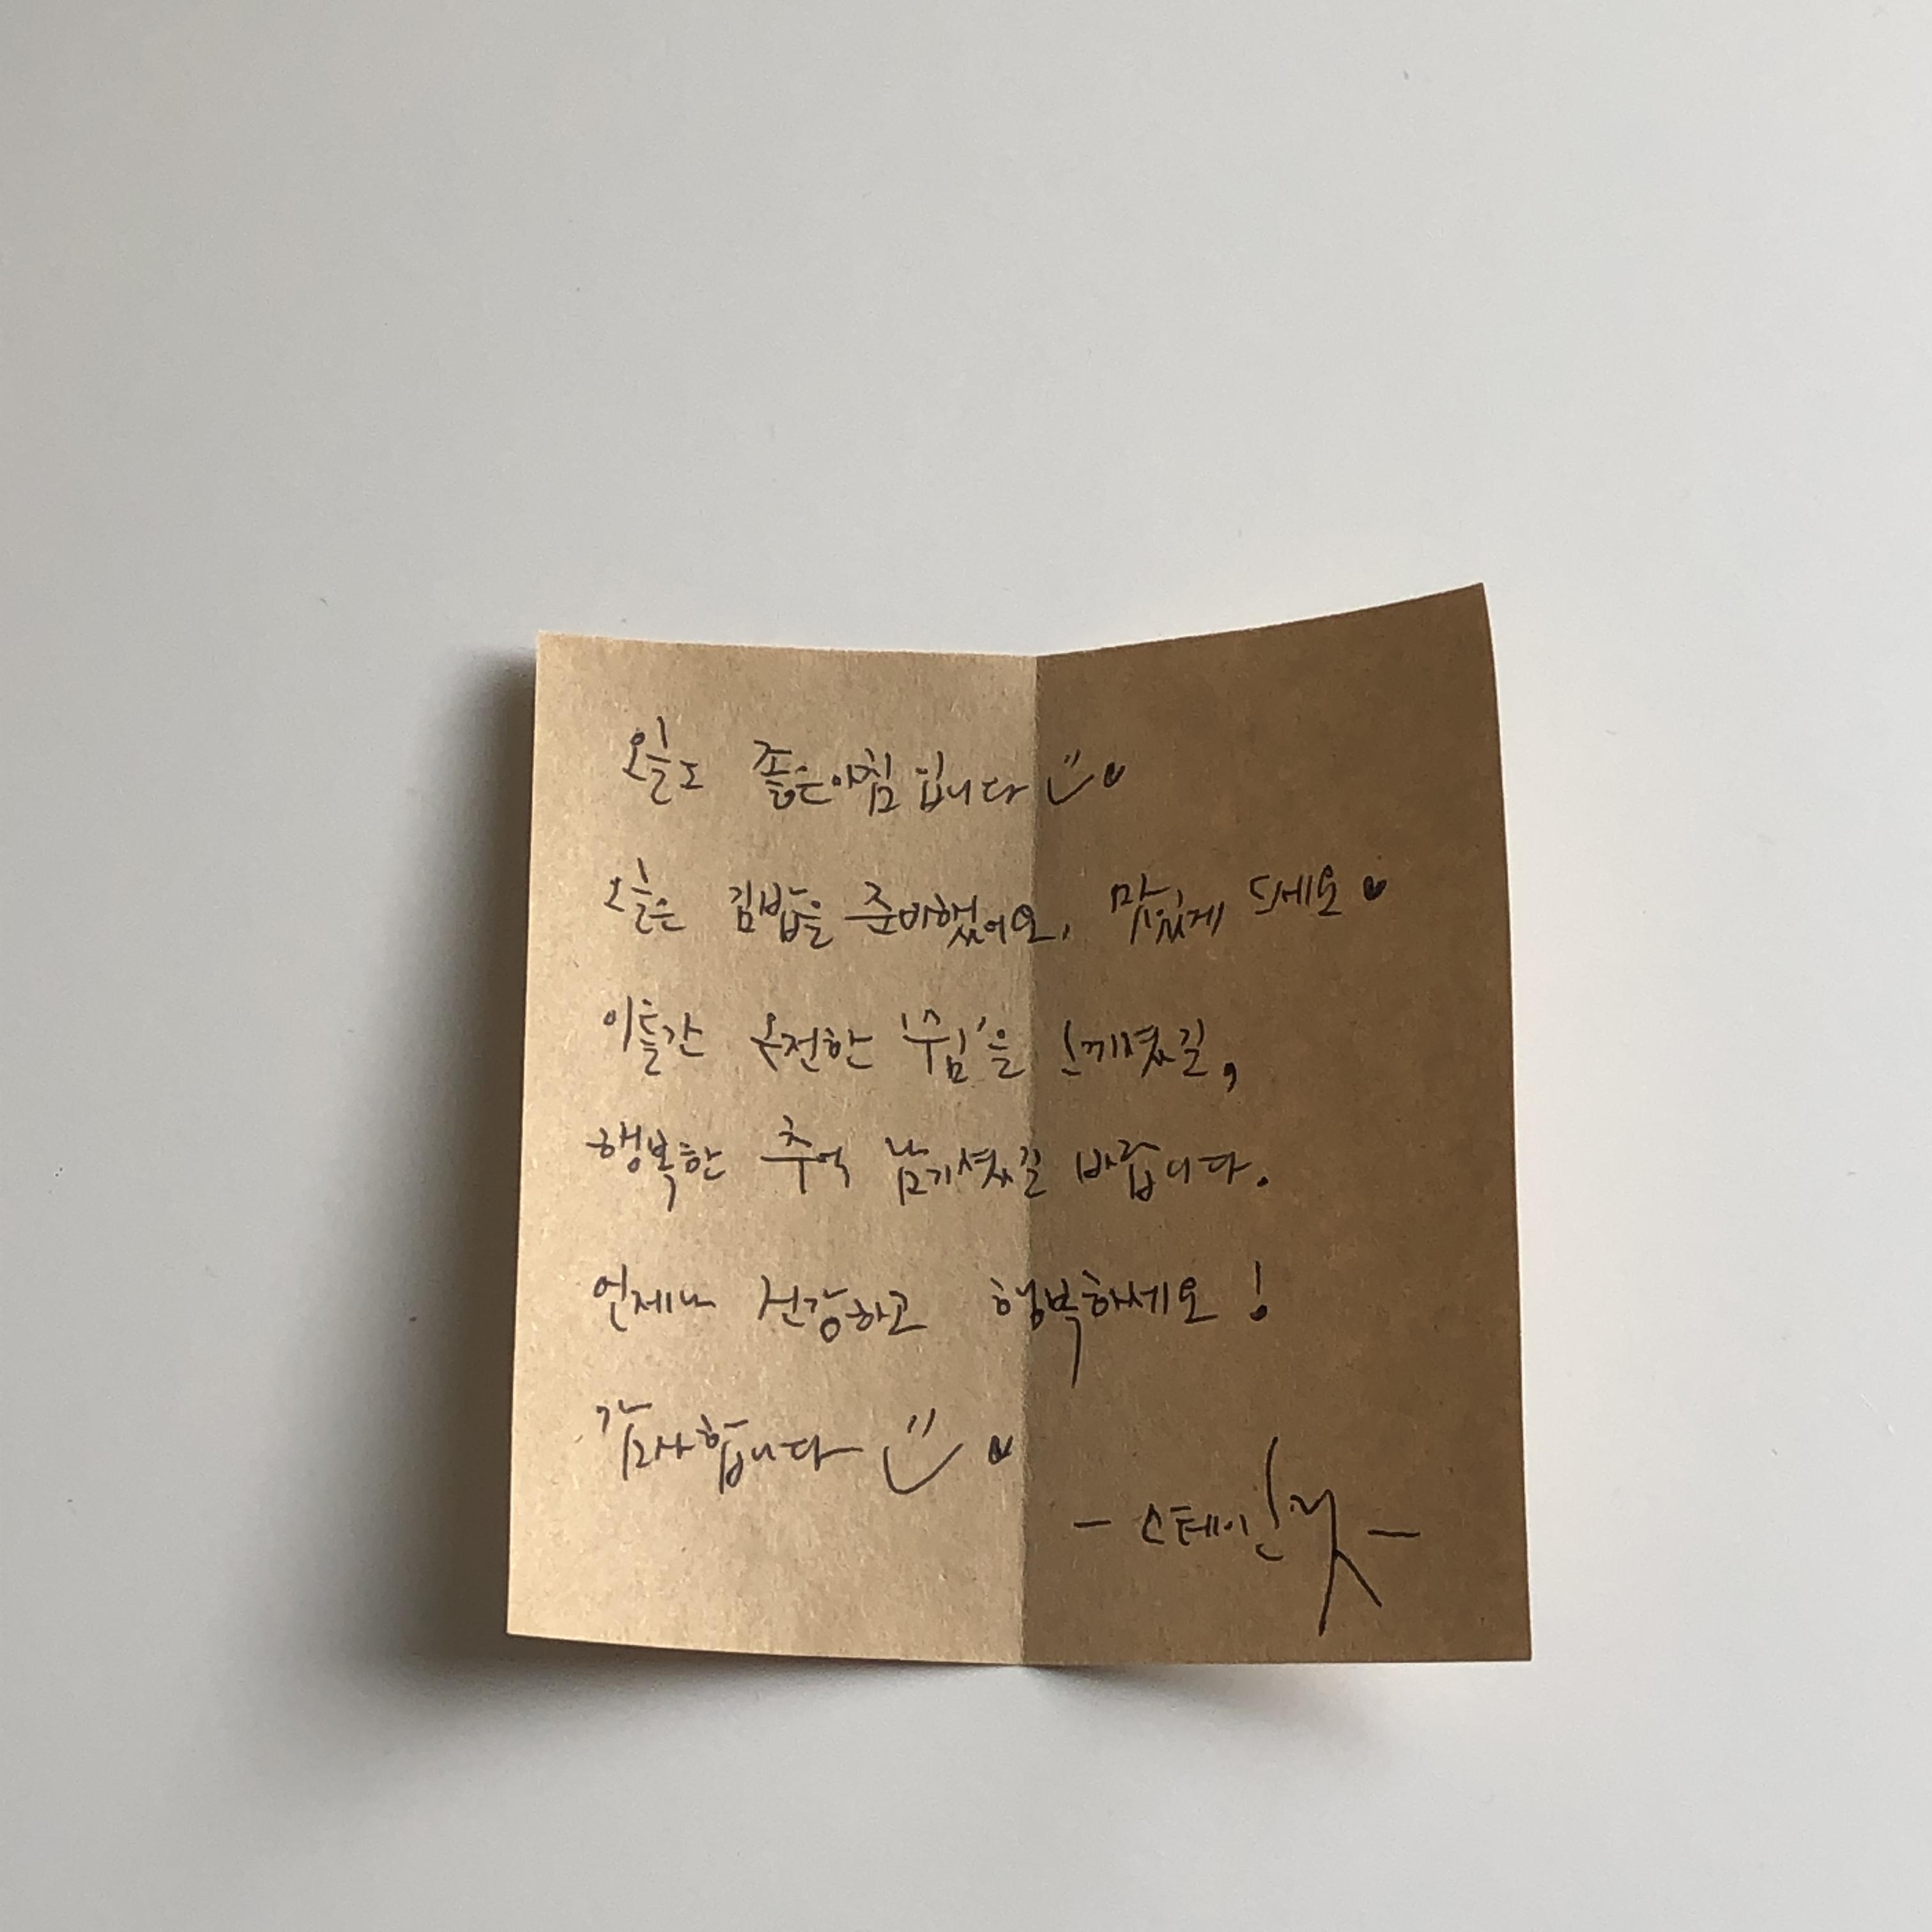 오늘도 좋은아침입니다
오늘은 김밥을 준비했어요, 맛있게 드세요
이틀간 온전한 '쉼'을 느끼셨길,
행복한 추억 남기셨길 바랍니다.
언제나 건강하고 행복하세요!
감사합니다